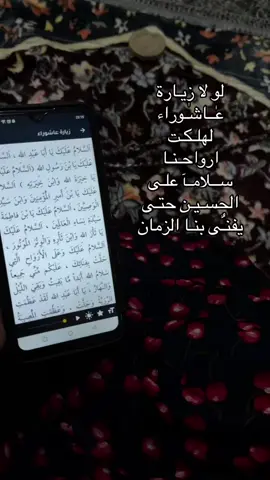 لولا زيارة
عاشوراء
لهلكت
ارواحنا
سلاماً على
الحسين حتى
يفنى بنا الزمان
زيارة عاشوراء
السَّلامُ عَلَيْكَ يَا أَبَا عَبْدِ اللهِ ، السَّلامُ
عَلَيْكَ يَا ابْنَ رَسُولِ اللهِ ، السَّلامُ
عَلَيْكَ يَا ابْنَ أَمِيرِ الْمُؤْمِنِينَ وَابْنَ سَيِّدِ
الْوَصِيِّينَ ، السَّلامُ عَلَيْكَ يَا ابْنَ فَاطِمَةَ
سَيِّدَةِ نِسَاءِ الْعَالَمِينَ ، السَّلامُ عَلَيْكَ
يَا ثَارَ اللهِ وَابْنَ ثَارِهِ وَالْوِتْرَ الْمَوْتُورَ ،
السَّلامُ عَلَيْكَ وَعَلَى الْأَرْوَاحِ الَّتِي
حَلَّتْ بِفِنَائِكَ ، عَلَيْكُمْ مِنِّي جَمِيعاً
سَلامُ اللهِ أَبَداً مَا بَقِيتُ وَبَقِيَ اللَّيْلُ
وَالنَّهَارُ ، يَا أَبَا عَبْدِ اللهِ لَقَدْ عَظُمَتِ